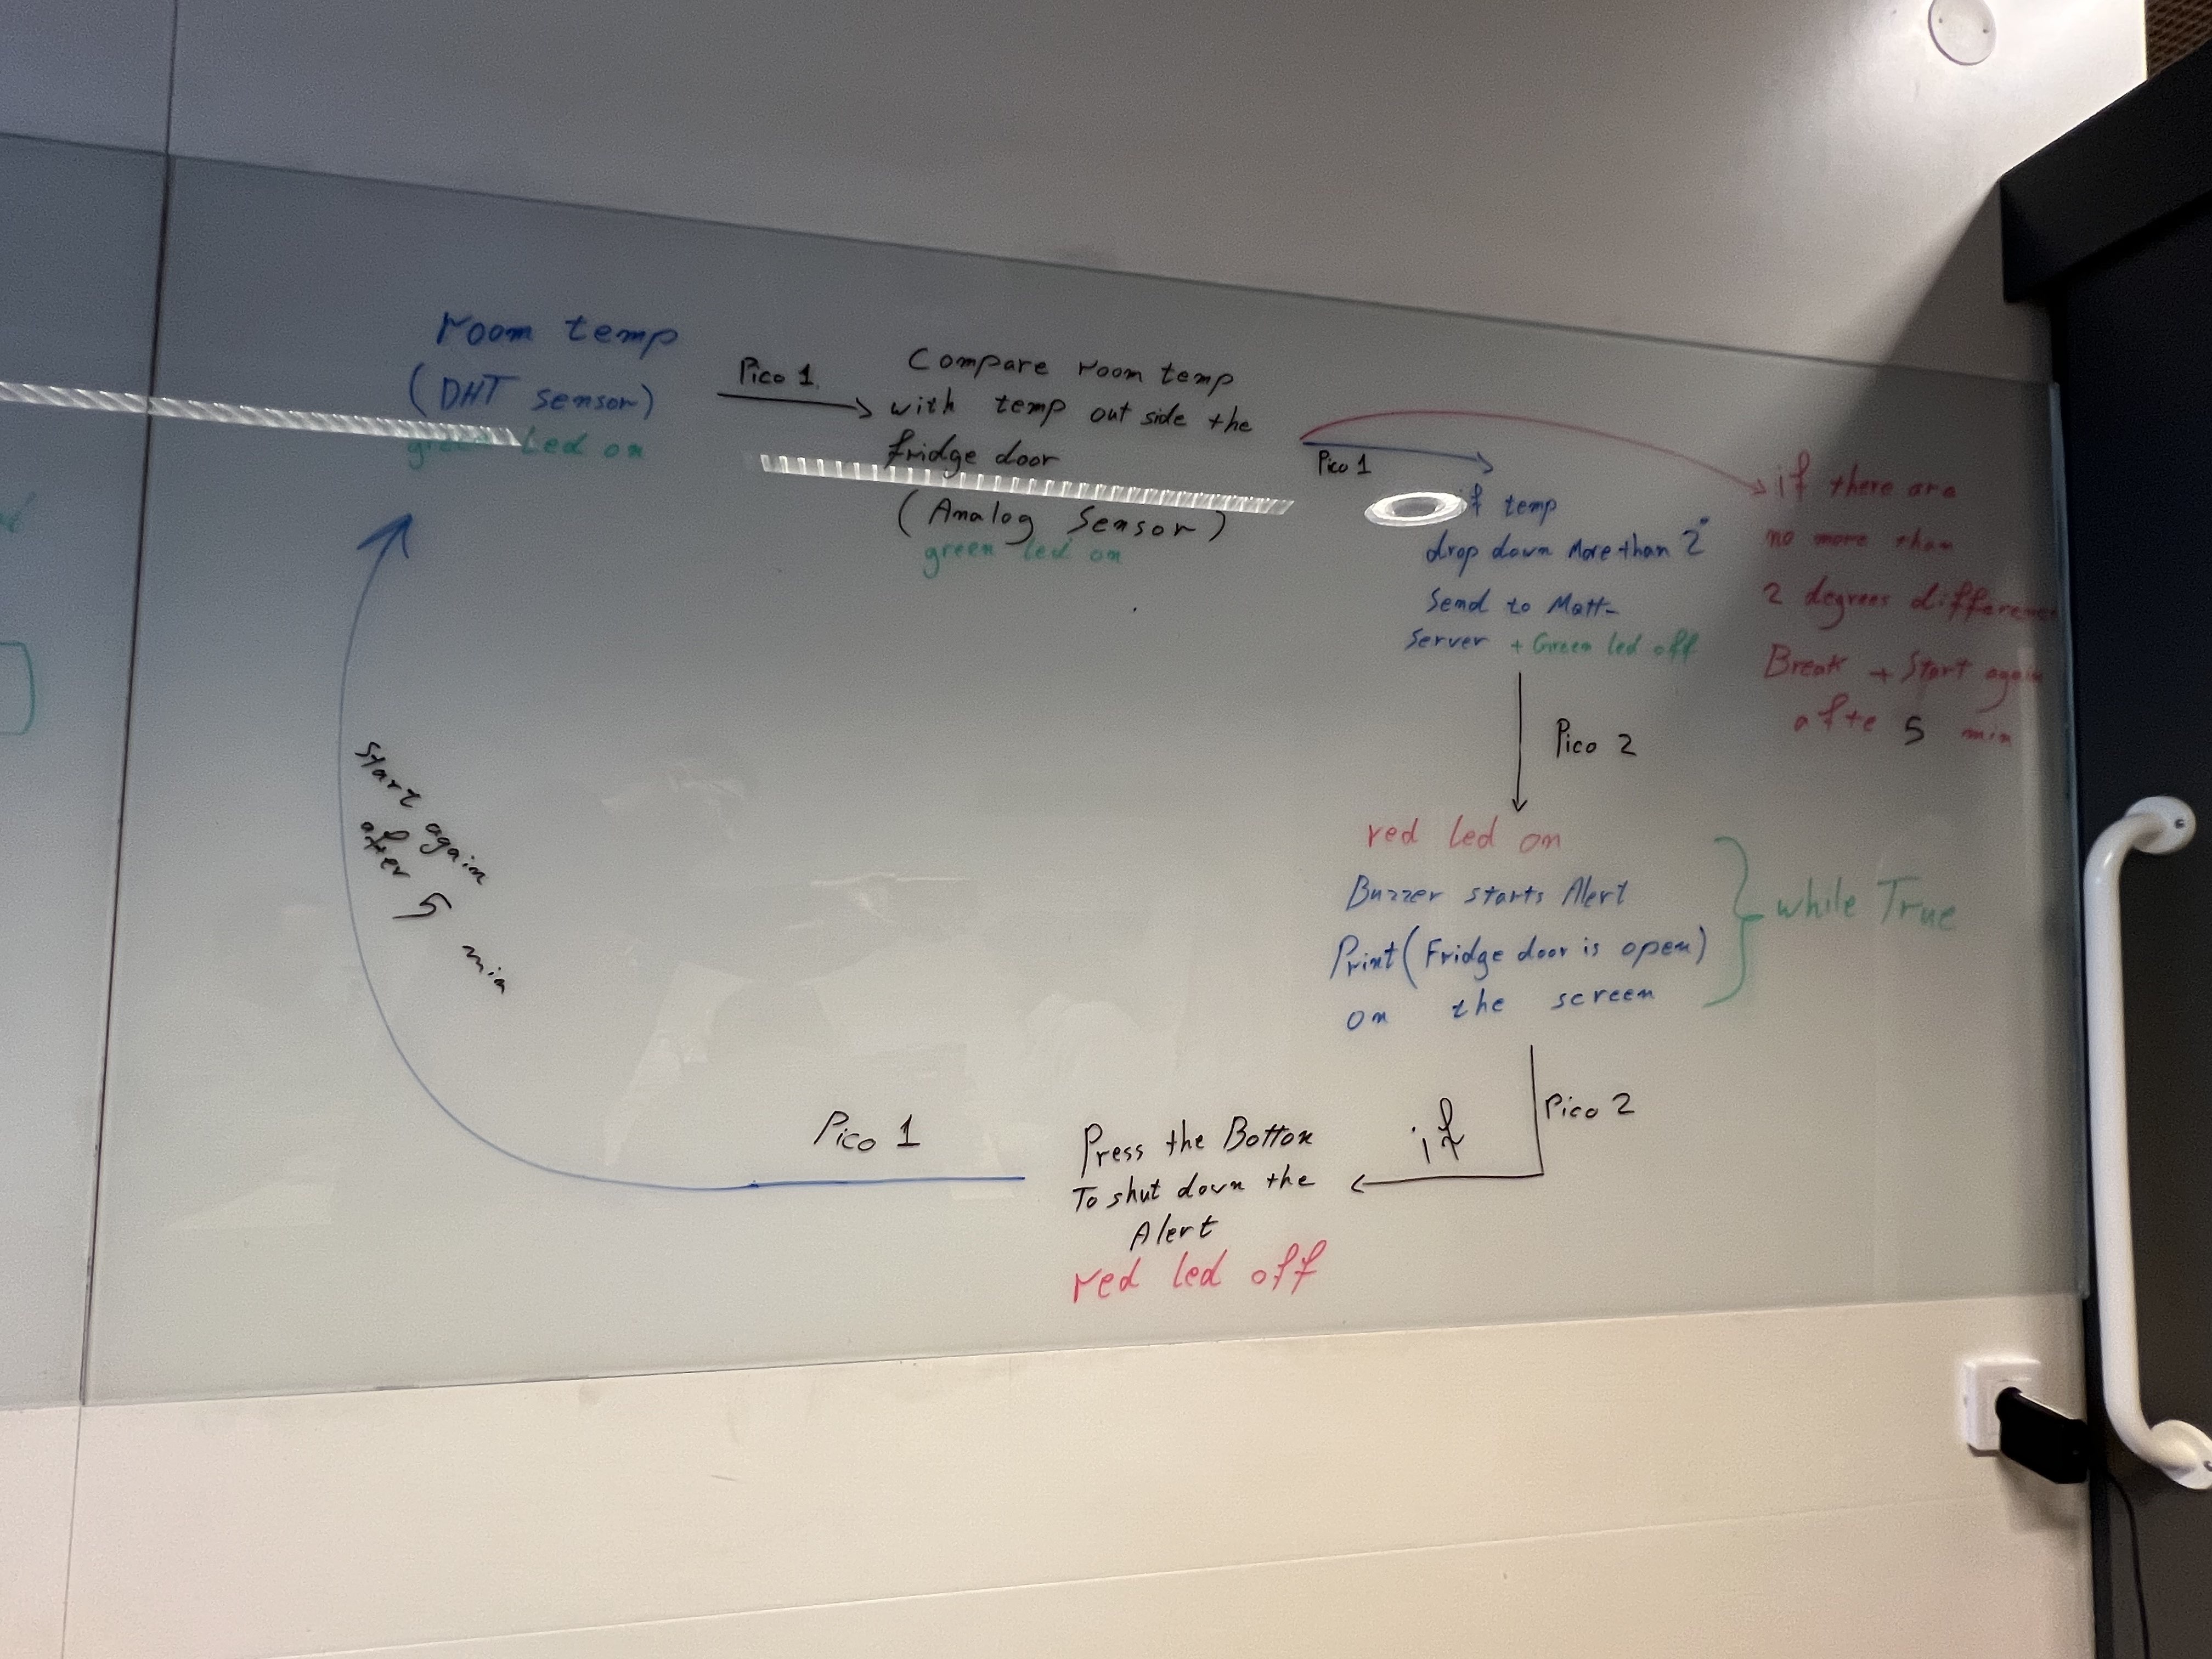 room temp
(DHT sensor)
green Led on
Pico 1
Compare room temp
with temp out side the
fridge door
(Analog Sensor)
green led on
Pico 1
if temp
drop down More than 2°
Send to Matt-
Server + Green led off
if there are
no more than
2 degrees difference
Break + Start again
afte 5 min
Pico 2
red led on
Buzzer starts Alert
Print(Fridge door is open)
on the screen
while True
Pico 2
if
Press the Botton
To shut down the
Alert
red led off
Pico 1
start again
after 5 min